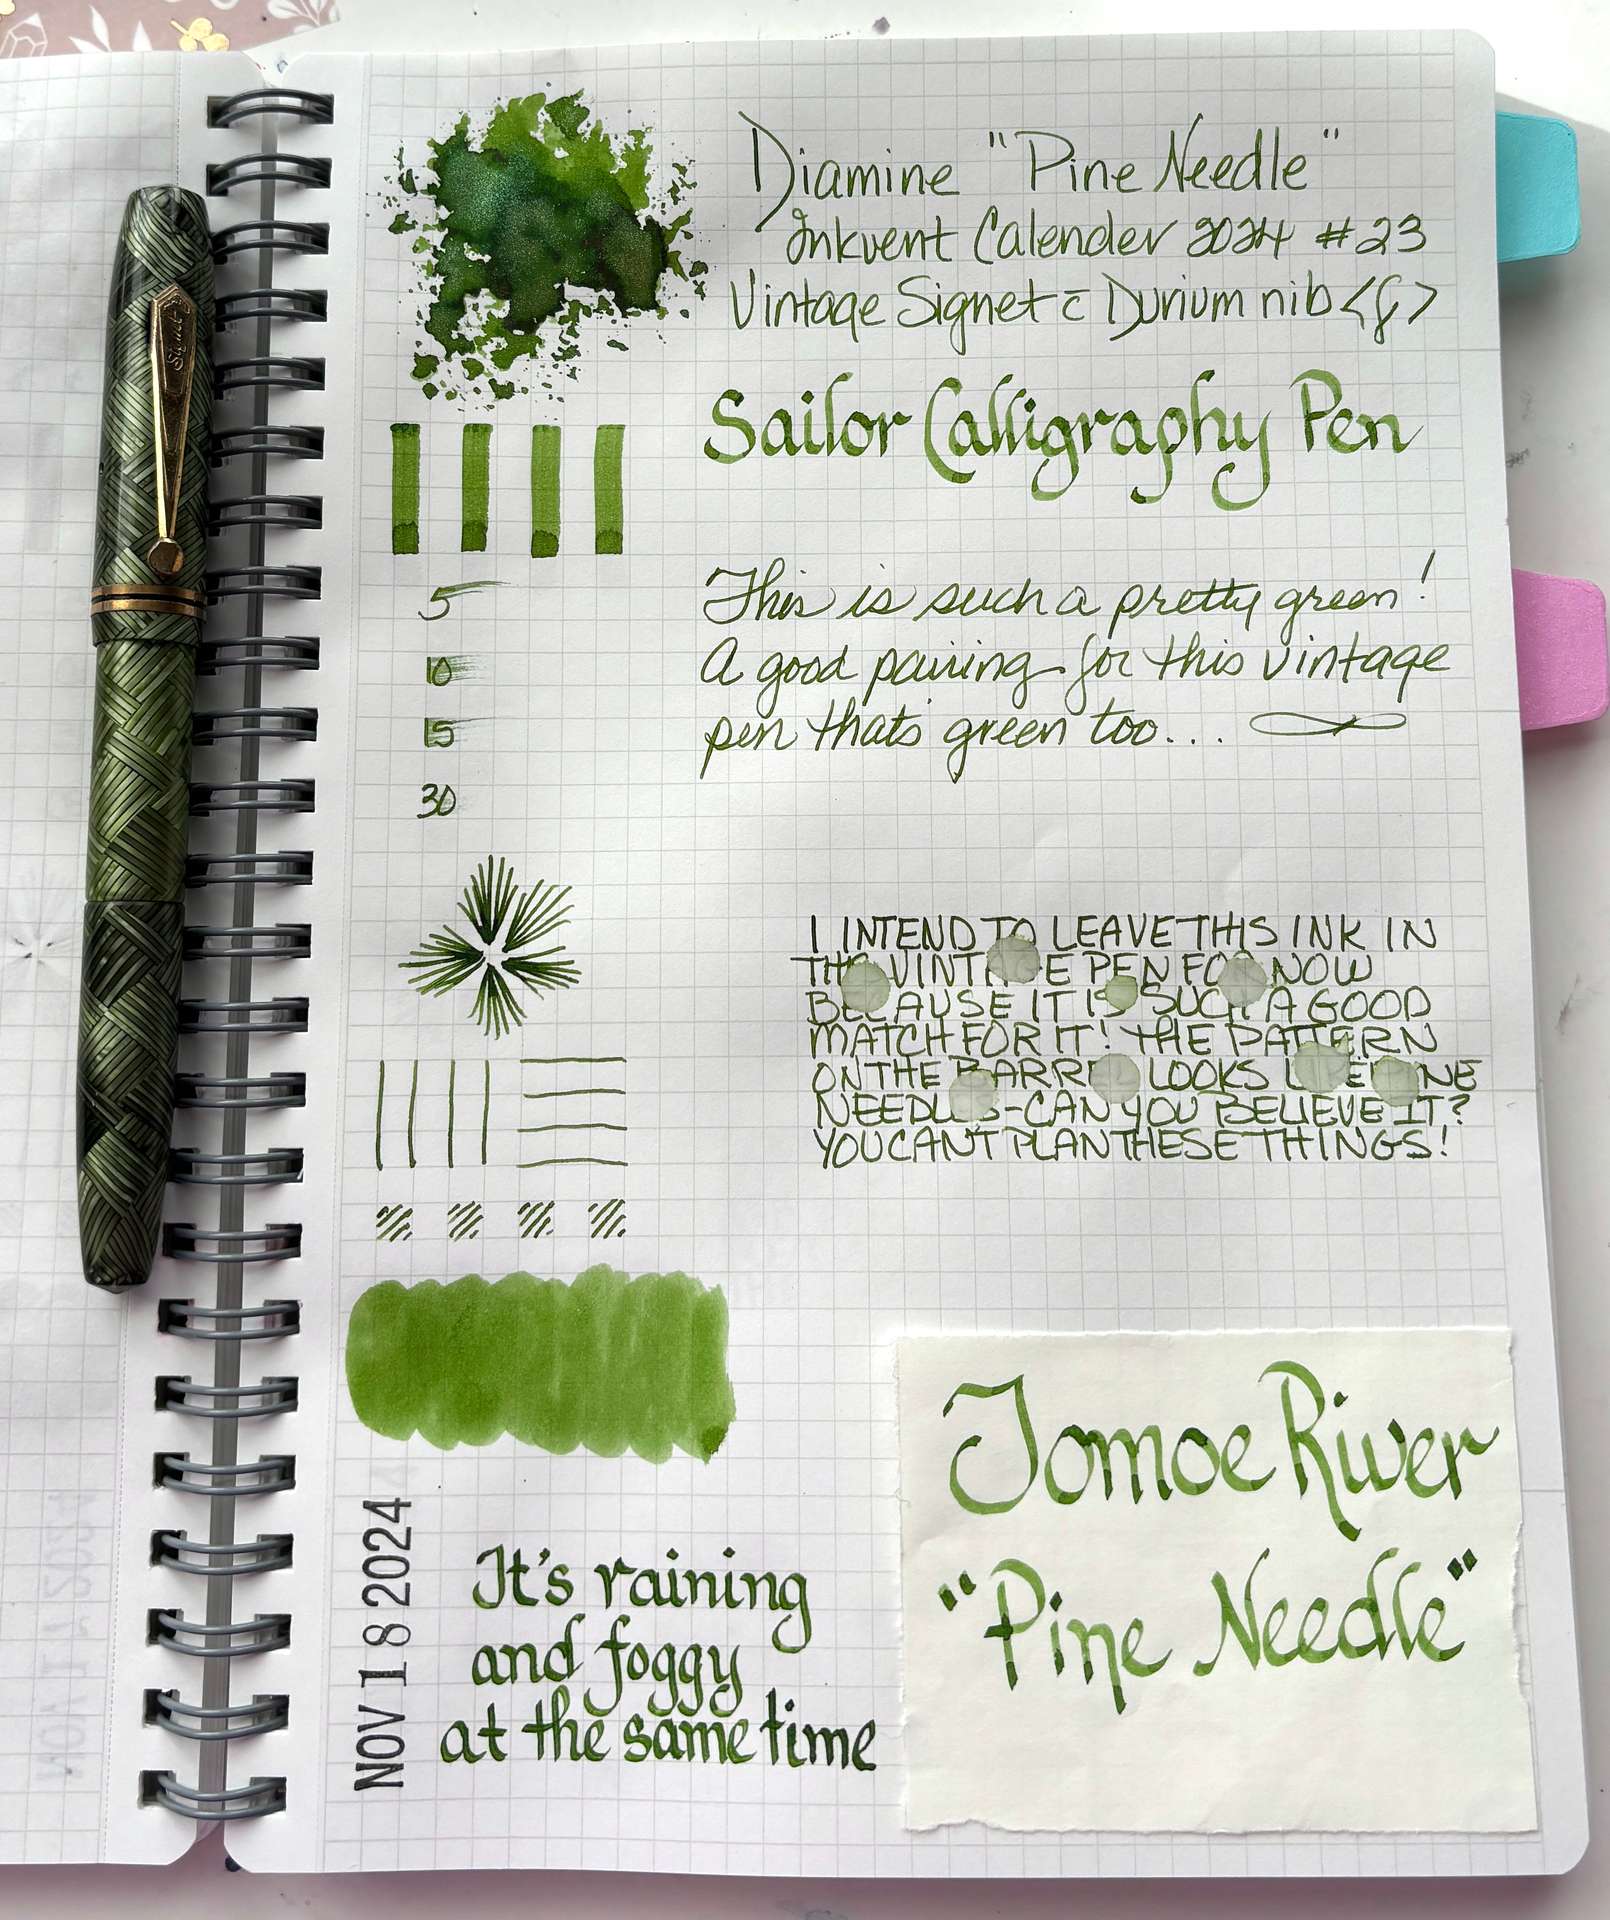 Diamine "Pine Needle"
Inkvent Calender 2024 #23
Vintage Signet c̄ Durium nib <f>
Signet
Sailor Calligraphy Pen
5
10
15
30
This is such a pretty green!
A good pairing for this vintage
pen thats green too...
I INTEND TO LEAVE THIS INK IN
THE VINTAGE PEN FOR NOW
BECAUSE IT IS SUCH A GOOD
MATCH FOR IT! THE PATTERN
ON THE BARREL LOOKS LIKE PINE
NEEDLES-CAN YOU BELIEVE IT?
YOU CANT PLAN THESE THINGS!
NOV 18 2024
It's raining
and foggy
at the same time
Tomoe River
"Pine Needle"